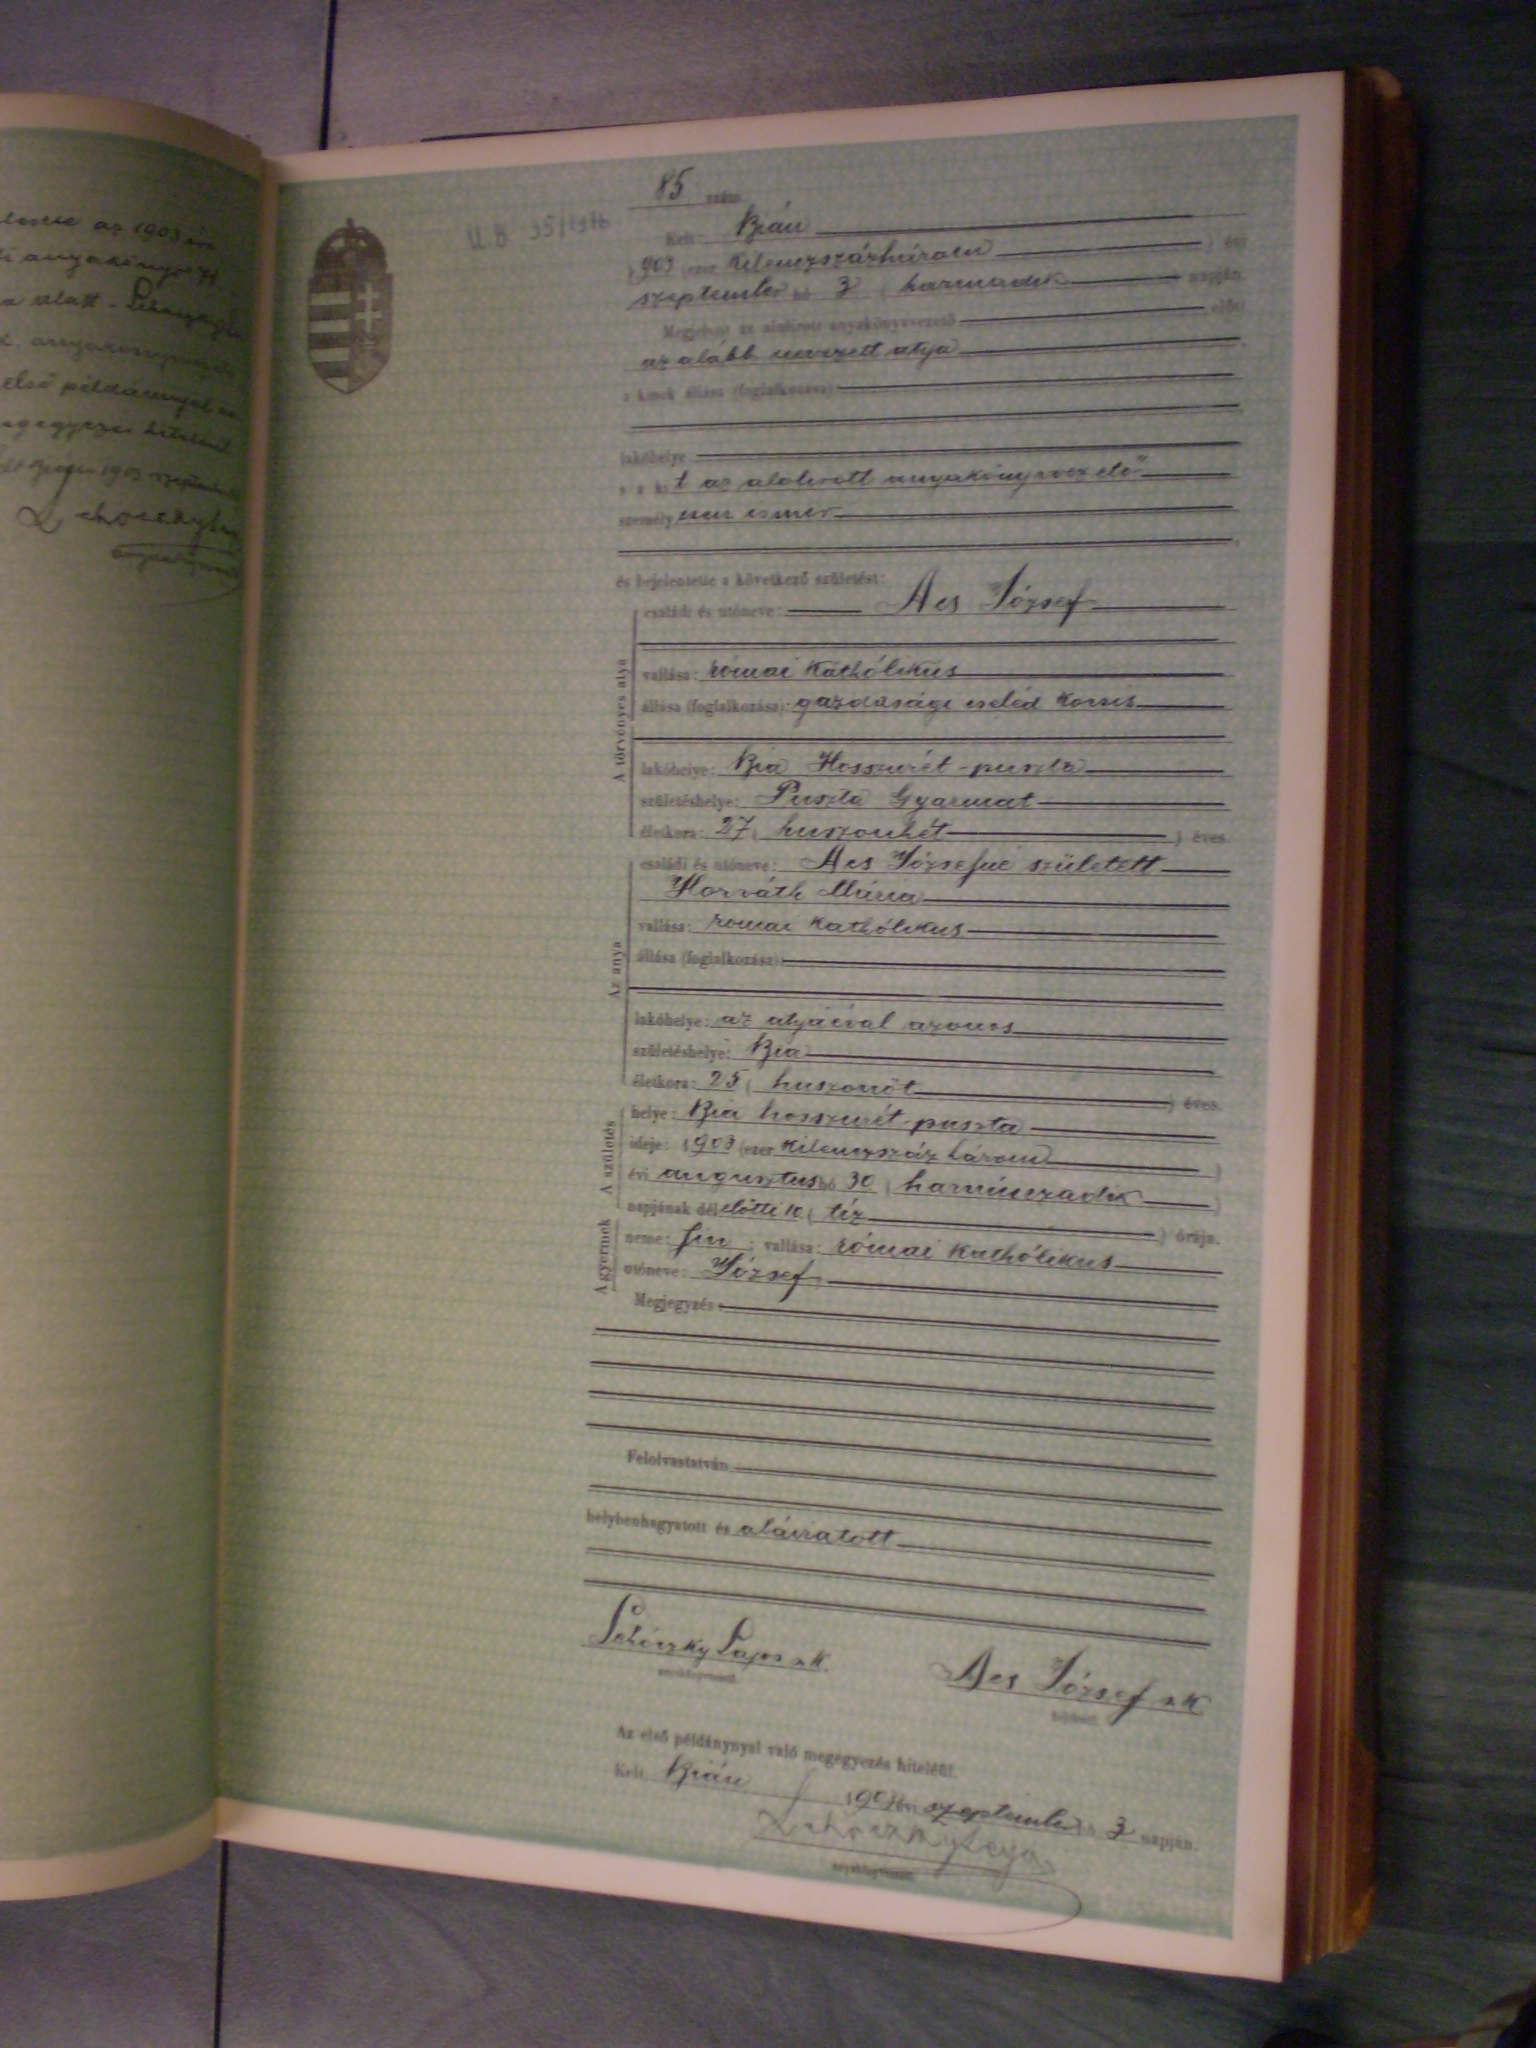 az 1903
alatt
első példánnyal
85 szám.
Kelt: Bián
1903 (ezer kilenczszázhárom) évi
szeptember hó 3 (harmadik) napján.
Megjelent az alulirott anyakönyvvezető előtt
az alább nevezett atya
a kinek állása (foglalkozása)
lakóhelye:
a kit az alolirott anyakönyvvezető
személyesen ismer
és bejelentette a következő születést:
A törvényes atya
családi és utóneve: Acs József
vallása: római kathólikus
állása (foglalkozása): gazdasági cseléd kocsis
lakóhelye: Bia Hosszurét-puszta
születéshelye: Puszta Gyarmat
életkora: 27 (huszonhét) éves.
Az anya
családi és utóneve: Acs Józsefné született
Horváth Mária
vallása: római kathólikus
állása (foglalkozása):
lakóhelye: az atyáéval azonos
születéshelye: Bia
életkora: 25 (huszonöt) éves.
A születés
helye: Bia hosszurét puszta
ideje: 1903 (ezer kilenczszáz három)
évi augusztus hó 30 (harminczadik)
napjának délelőtti 10 (tíz) órája.
A gyermek
neme: fiu; vallása: római kathólikus
utóneve: József
Megjegyzés:
Felolvastatván
helybenhagyatott és aláiratott
Lehóczky Lajos s.k. Acs József s.k.
anyakönyvvezető. bejelentő.
Az első példánynyal való megegyezés hiteléül.
Kelt Bián 1903 évi szeptember hó 3 napján.
anyakönyvvezető.